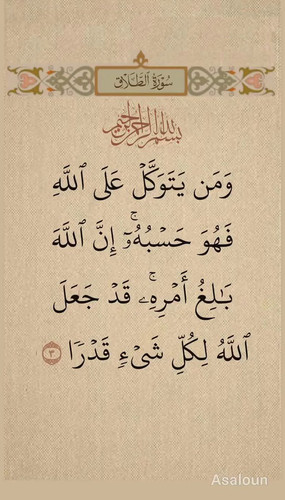 سُورَةُ الطَّلَاقِ
بِسْمِ اللَّهِ الرَّحْمَٰنِ الرَّحِيمِ
وَمَن يَتَوَكَّلْ عَلَى ٱللَّهِ
فَهُوَ حَسْبُهُۥٓ ۚ إِنَّ ٱللَّهَ
بَـٰلِغُ أَمْرِهِۦ ۚ قَدْ جَعَلَ
ٱللَّهُ لِكُلِّ شَىْءٍ قَدْرًا ٣
Asaloun